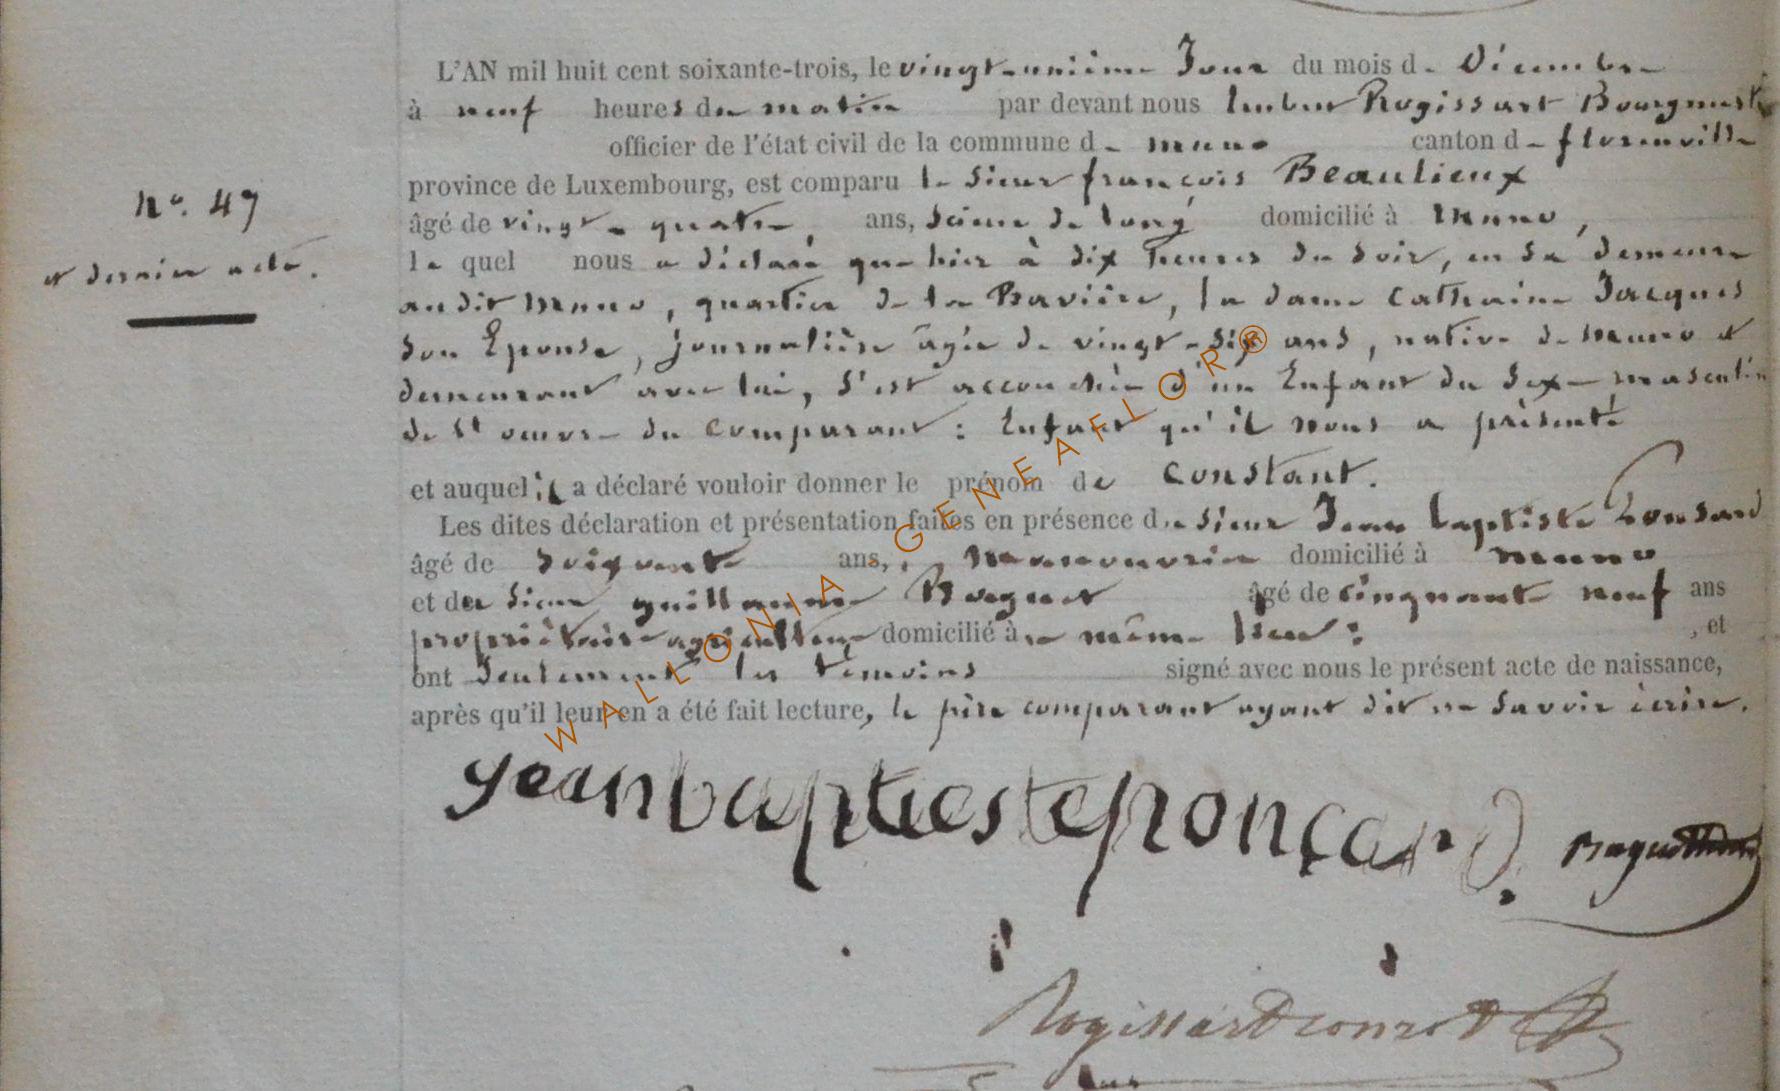 L'AN mil huit cent soixante-trois, le vingt-unième Jour du mois de Décembre
à neuf heures du matin par devant nous Rogissart Bourgmestre
officier de l'état civil de la commune de muno canton de florenville
province de Luxembourg, est comparu le Sieur françois Beaulieux
nº. 47
âgé de vingt-quatre, ans, Scieur de long domicilié à Muno,
et dernier acte.
le quel nous a déclaré que hier à dix heures du Soir, en Sa demeure
audit Muno, quartier de la Bavière, la dame Catheraine Jacques
Son Epouse, journalière âgée de vingt-six ans, native de Muno et
demeurant avec lui, S'est accouchée d'un Enfant du Sexe masculin
de et œuvre du comparant : Enfant qu'il nous a présenté
et auquel il a déclaré vouloir donner le prénom de Constant.
Les dites déclaration et présentation faites en présence du Sieur Jean baptiste Ponsard
âgé de Soixante ans, Manouvrier domicilié à Muno
et du Sieur guillaume Baguet âgé de Cinquante neuf ans
propriétaire-agriculteur domicilié à même lieu ; , et
ont Seulement les témoins signé avec nous le présent acte de naissance,
après qu'il leur en a été fait lecture, le père comparant ayant dit ne Savoir écrire.
jean baptieste ponçard.
Rogissart
WALLONIA - GENEAFLOR®